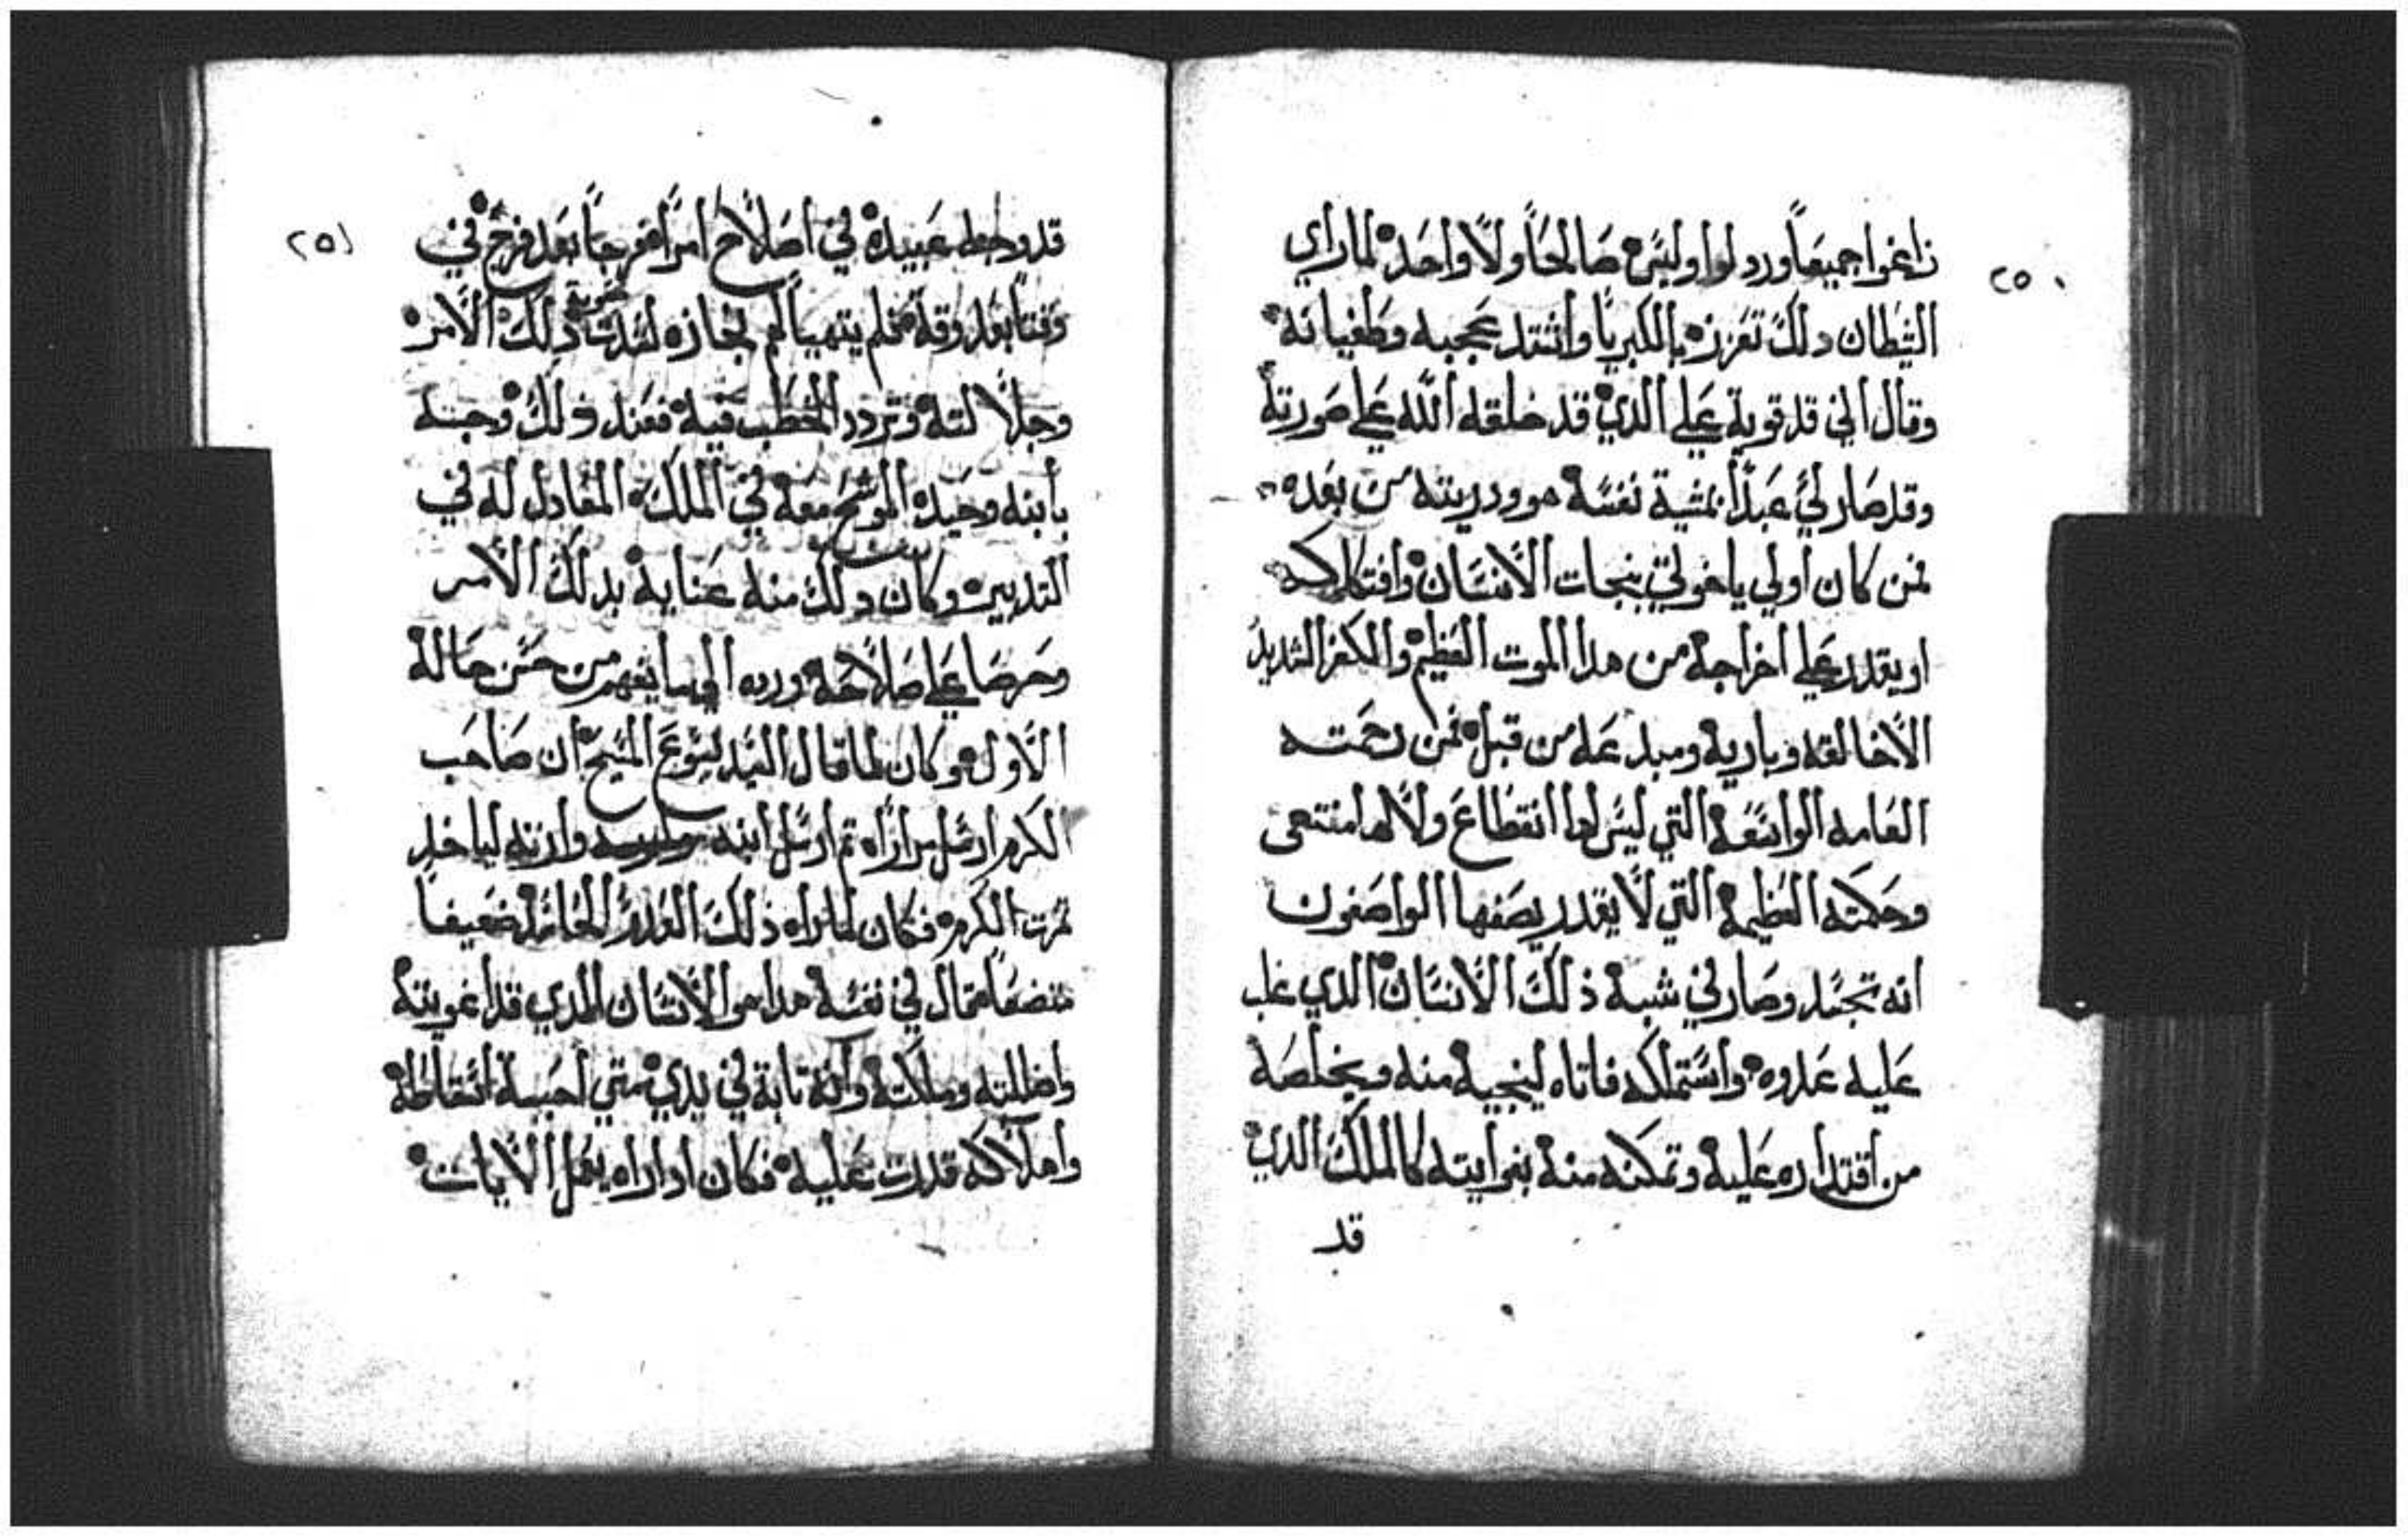 ٢٥٠
زاغوا جميعاً وردلوا وليس صالحاً ولا واحد لما راي
الشيطان دلك تعززه بالكبريا واشتد عجبه وطغيانه
وقال اني قد قوية علي الدي قد خلقه الله علي صورته
وقد صار لي عبداً بمشية نفسه هو ودريته من بعده
فمن كان اولي ياخوتي بنجات الانسان وافتكاكه
او يقدر علي اخراجه من هدا الموت العظيم والكفر الشديد
الا خالقه وباريه ومبدعه من قبل فمن رحمته
العامه الواسعة التي ليس لها انقطاع ولا لها منتهى
وحكمته العظيمة التي لا يقدر يصفها الواصفون
انه تجسد وصار في شبه ذلك الانسان الدي غلب
عليه عدوه واستملكه فاتاه لينجيه منه ويخلصه
من اقتداره عليه وتمكنه منه بغوايته كالملك الدي
قد
٢٥١
قد وجه عبيده في اصلاح امراً فوجاً بعد فوج في
وقتاً بعد وقة فلم يتهيا لهم نجازه لشدت صعوبة ذلك الامر
وجلالته وتردد الخطب فيه فعند ذلك وجه
بابنه وحيده الموشح معه في الملك المعادل له في
التدبير وكان دلك منه عناية بدلك الامر
وحرصا علي صلاحه ورده الي ما يفهم من حسن حاله
الاول هو كان لما قال السيد يسوع المسيح ان صاحب
الكرم ارسل مراراه تم ارسل ابنه وارته لياخد
تمرت الكرم فكان لما راه ذلك العدو الحاسد ضعيفا
متضعاً قال في نفسه هدا هو الانسان الدي قد اغويته
واضللته وملكته وانه تابة في يدي متي احببة اسقاطه
واهلاكه قدرت عليه فكان ادا راه يفعل الايات